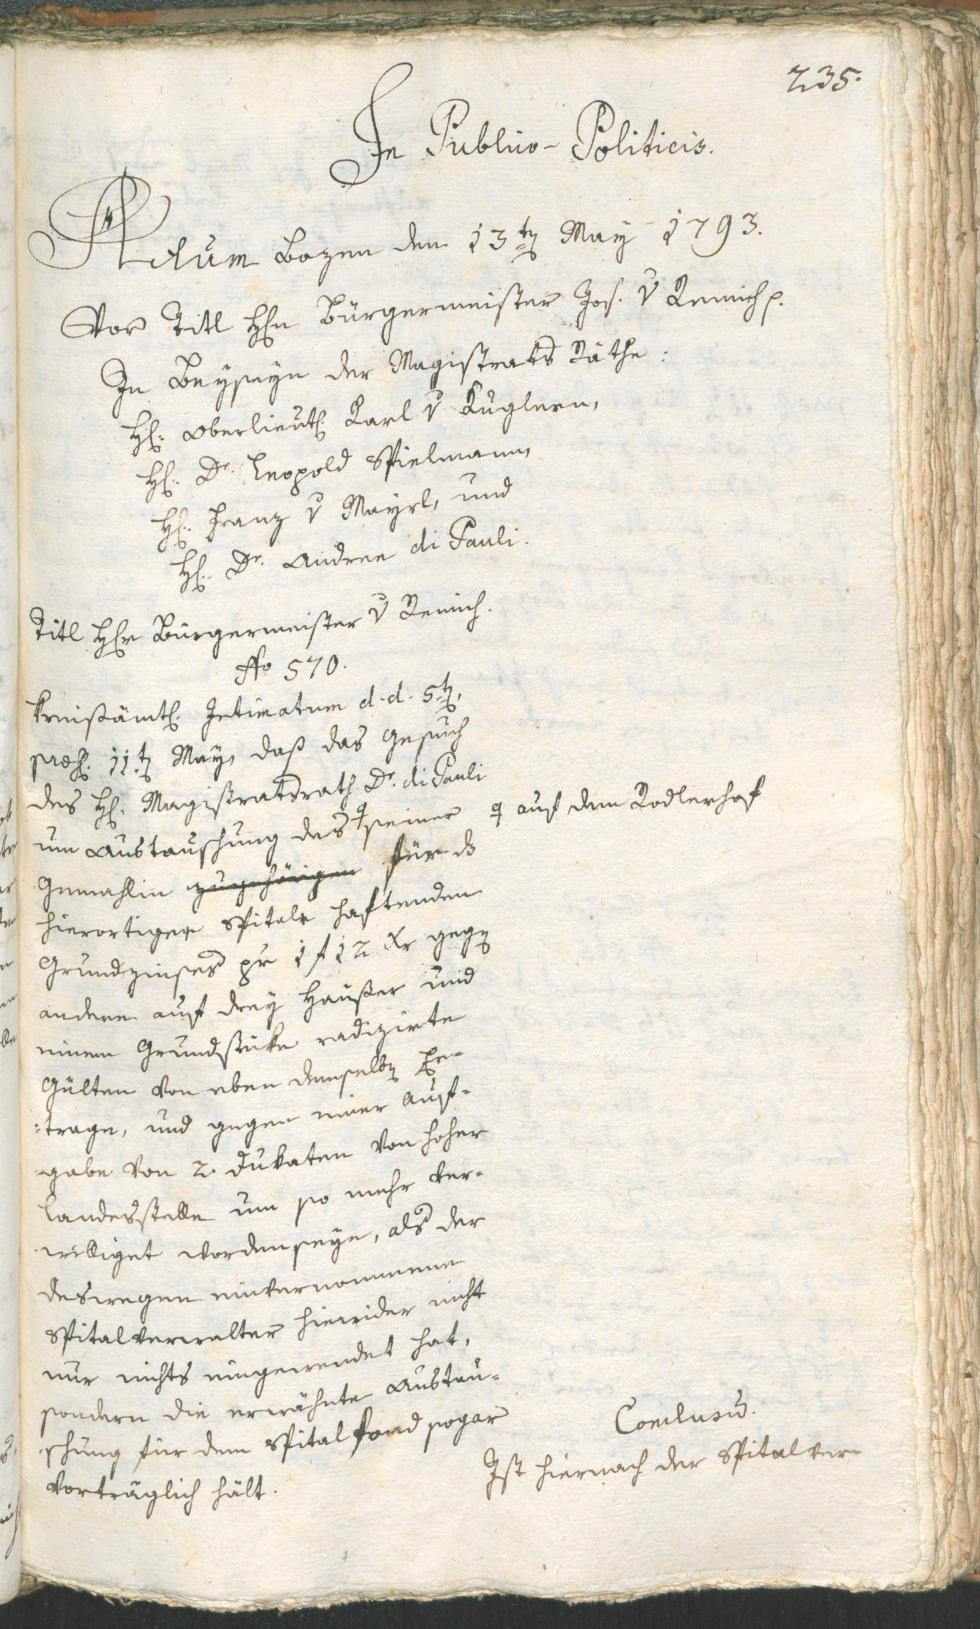 235.
In Publico-Politicis.
Actum Bozen den 13ten May 1793.
Vor Titl Hhn Bürgermeister Jos. v Remich p.
In Beyseyn der Magistrats Räthe:
H: Oberlieut: Karl v Kuglern,
H: Dr. Leopold Spielmann,
H: Franz v Mayrl, und
H: Dr. Andree di Pauli.
Titl Hhr Bürgermeister v Remich.
No 570.
Kreißämtl: Intimatum d. d. 5t,
præs: 11t May, daß das Gesuch
des H: Magistratsrath Dr. di Pauli
um Austauschung des seiner auf dem Rodlerhof
Gemahlin zugehörigen für ds
hierortigen Spitals haftenden
Grundzinses pr 1 f 12 xr gegen
andern auf drey Haußer und
einem Grundstüke radizirte
Gülten von eben demselben Be-
:trage, und gegen einer Auf-
gabe von 2. Dukaten von hoher
Landesstelle um so mehr ver-
williget worden seye, als der
deswegen einvernommene
Spitalverwalter hierwider nicht
nur nichts eingewendet hat,
sondern die erwähnte Austau-
schung für dem Spitalfond sogar
vorträglich hält.
Conclusum.
Ist hiernach der Spitalver-